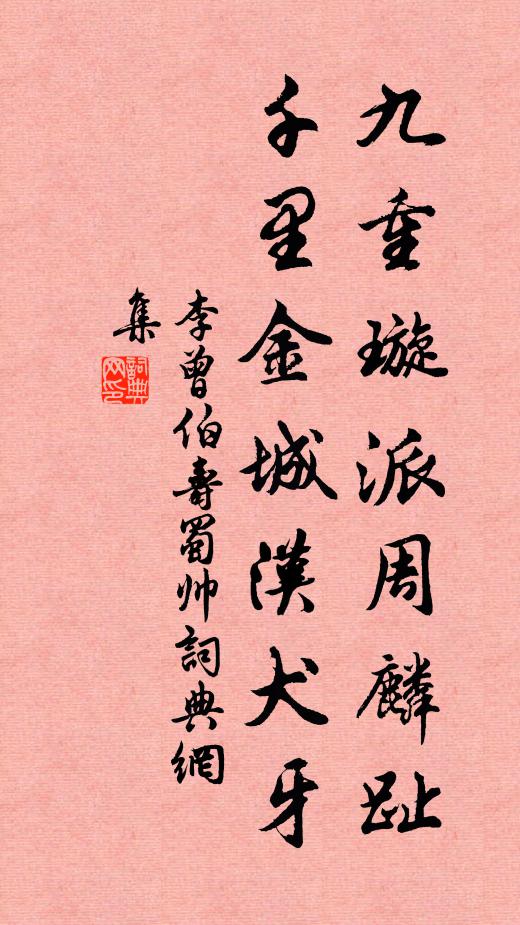 九重璇派周麟趾
千里金城漢犬牙
李曾伯壽蜀帅詞典網
集
詞典网印